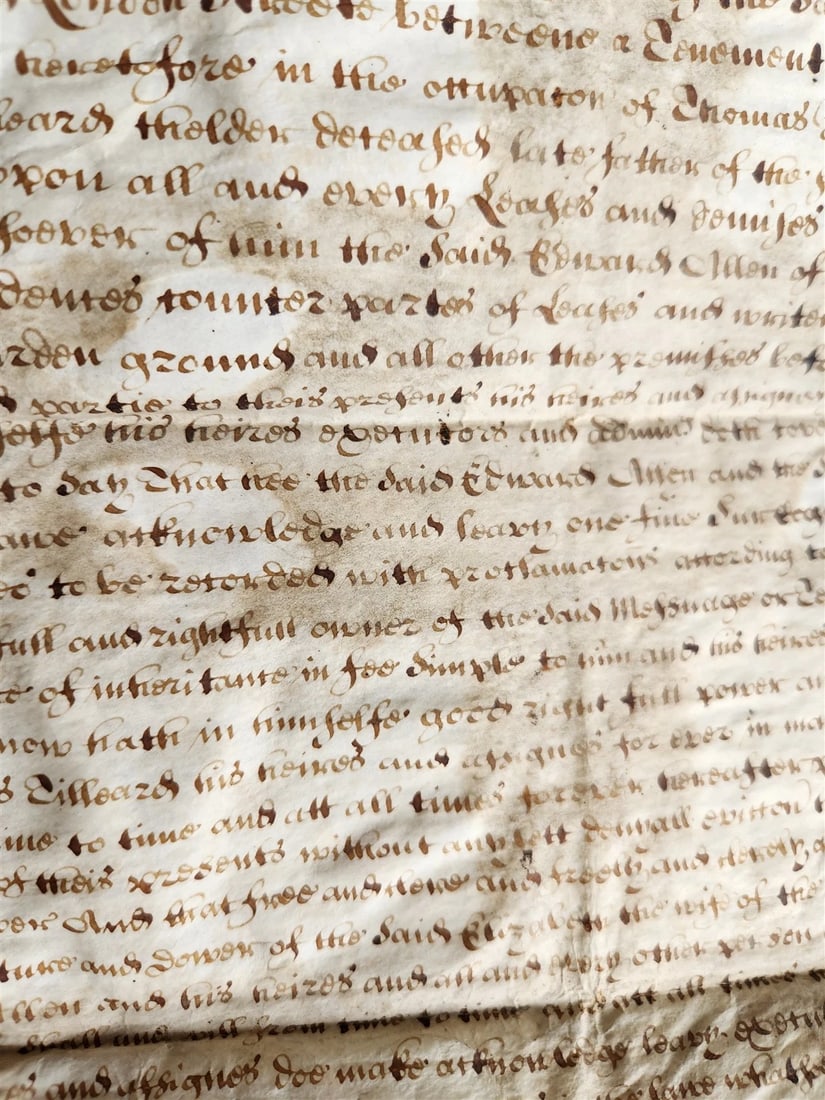 London Streete betweene a Tenement
heretofore in the occupacon of Thomas
leard thelder deceased late father of the
upon all and every Leases and demises
soever of him the said Edward Allen of
dentes counter partes of Leases and write
arden ground and all other the premisses befo
partie to theis presents his heires and assignes
selfe his heires executors and admin doth cove
to say That hee the said Edward Allen and the
acknowledge and leavy one fine
to be recorded with proclamacons according to
full and rightfull owner of the said Messuage or Te
of inheritance in fee simple to him and his heires
now hath in himselfe good right full power an
s Tilleard his heires and assignes for ever in ma
ime to time and att all times forever hereafter
of theis presents without any lett deniall eviccon
ver And that free and clere and freely and clerely
ture and dower of the said Elizabeth the wife of the
Allen and his heires and all and every other person
shall and will from time to time and att all times
es and assignes doe make acknowledge leavy execut
the lawe whatsoe